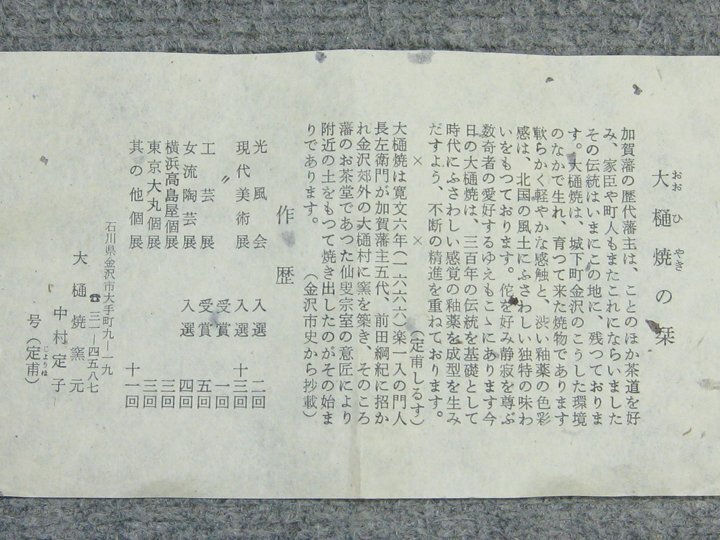 大樋焼の栞
おおひやき
加賀藩の歴代藩主は、ことのほか茶道を好
み、家臣や町人もまたこれにならいました
その伝統はいまにこの地に、残つておりま
す。大樋焼は、城下町金沢のこうした環境
のなかで生れ、育つて来た焼物であります
軟らかく軽やかな感触と、渋い釉薬の色彩
感は、北国の風土にふさわしい独特の味わ
いをもつております。侘を好み静寂を尊ぶ
数奇者の愛好するゆえもこゝにあります今
日の大樋焼は、三百年の伝統を基礎として
時代にふさわしい感覚の釉薬を成型を生み
だすよう、不断の精進を重ねております。
× × × (定甫しるす)
大樋焼は寛文六年(一六六六)楽一入の門人
長左衛門が加賀藩主五代、前田綱紀に招か
れ金沢郊外の大樋村に窯を築き、そのころ
藩のお茶堂であつた仙叟宗室の意匠により
附近の土をもつて焼き出したのがその始ま
りであります。 (金沢市史から抄載)
作歴
光風会 入選 二回
現代美術展 入選 十三回
〃 受賞 一回
工芸展 受賞 五回
女流陶芸展 入選 四回
横浜高島屋個展 三回
東京大丸個展 三回
其の他個展 十一回
石川県金沢市大手町九ー一九
☎三一ー四五八七
大樋焼窯元
中村定子
じょうほ
号(定甫)